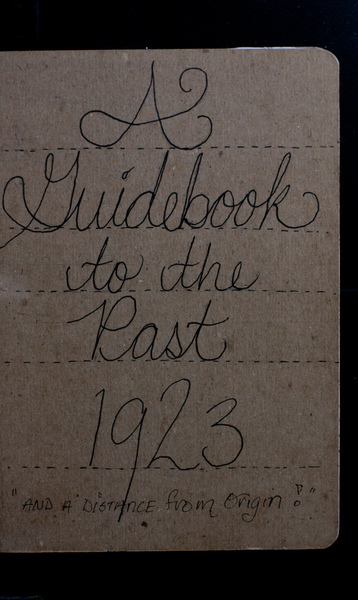 A
Guidebook
to the
Past
1923
"AND A DISTANCE from Origin!"